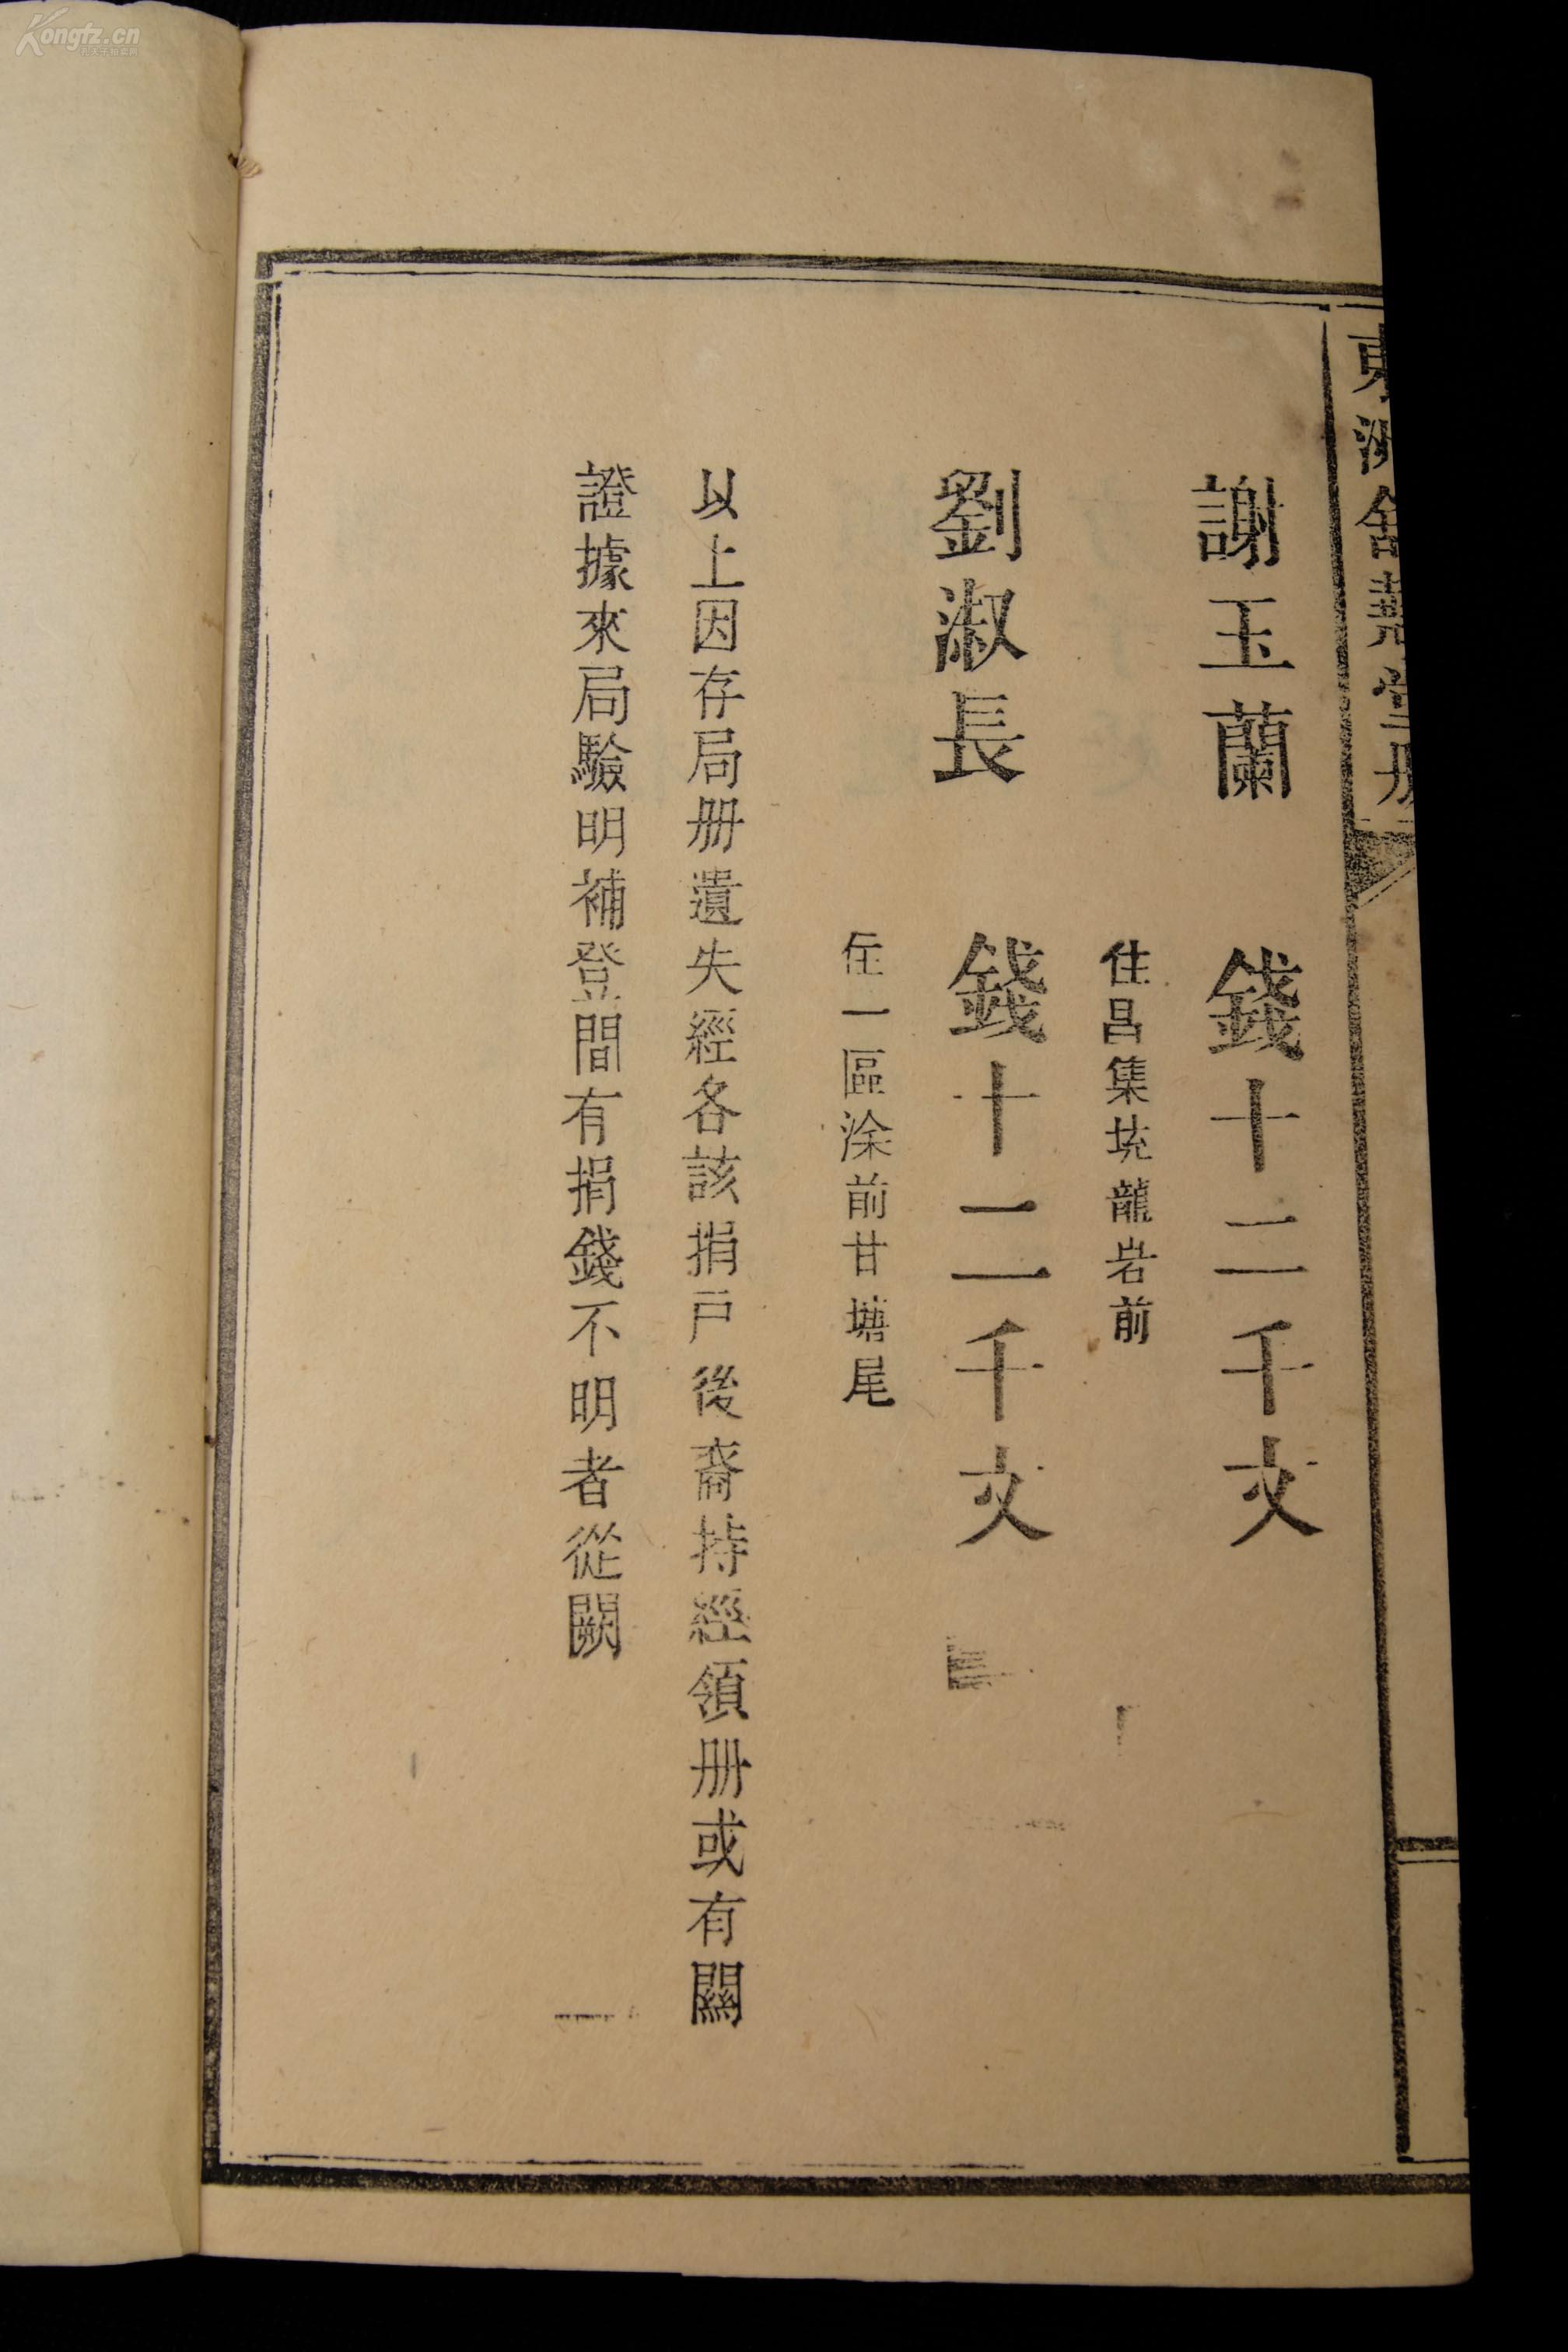 謝玉蘭　錢十二千文
住昌集坑龍岩前
劉淑長　錢十二千文
住一區涂前甘塘尾
以上因存局册遺失經各該捐戶後裔持經領册或有關
證據來局驗明補登間有捐錢不明者從闕
Kongfz.cn